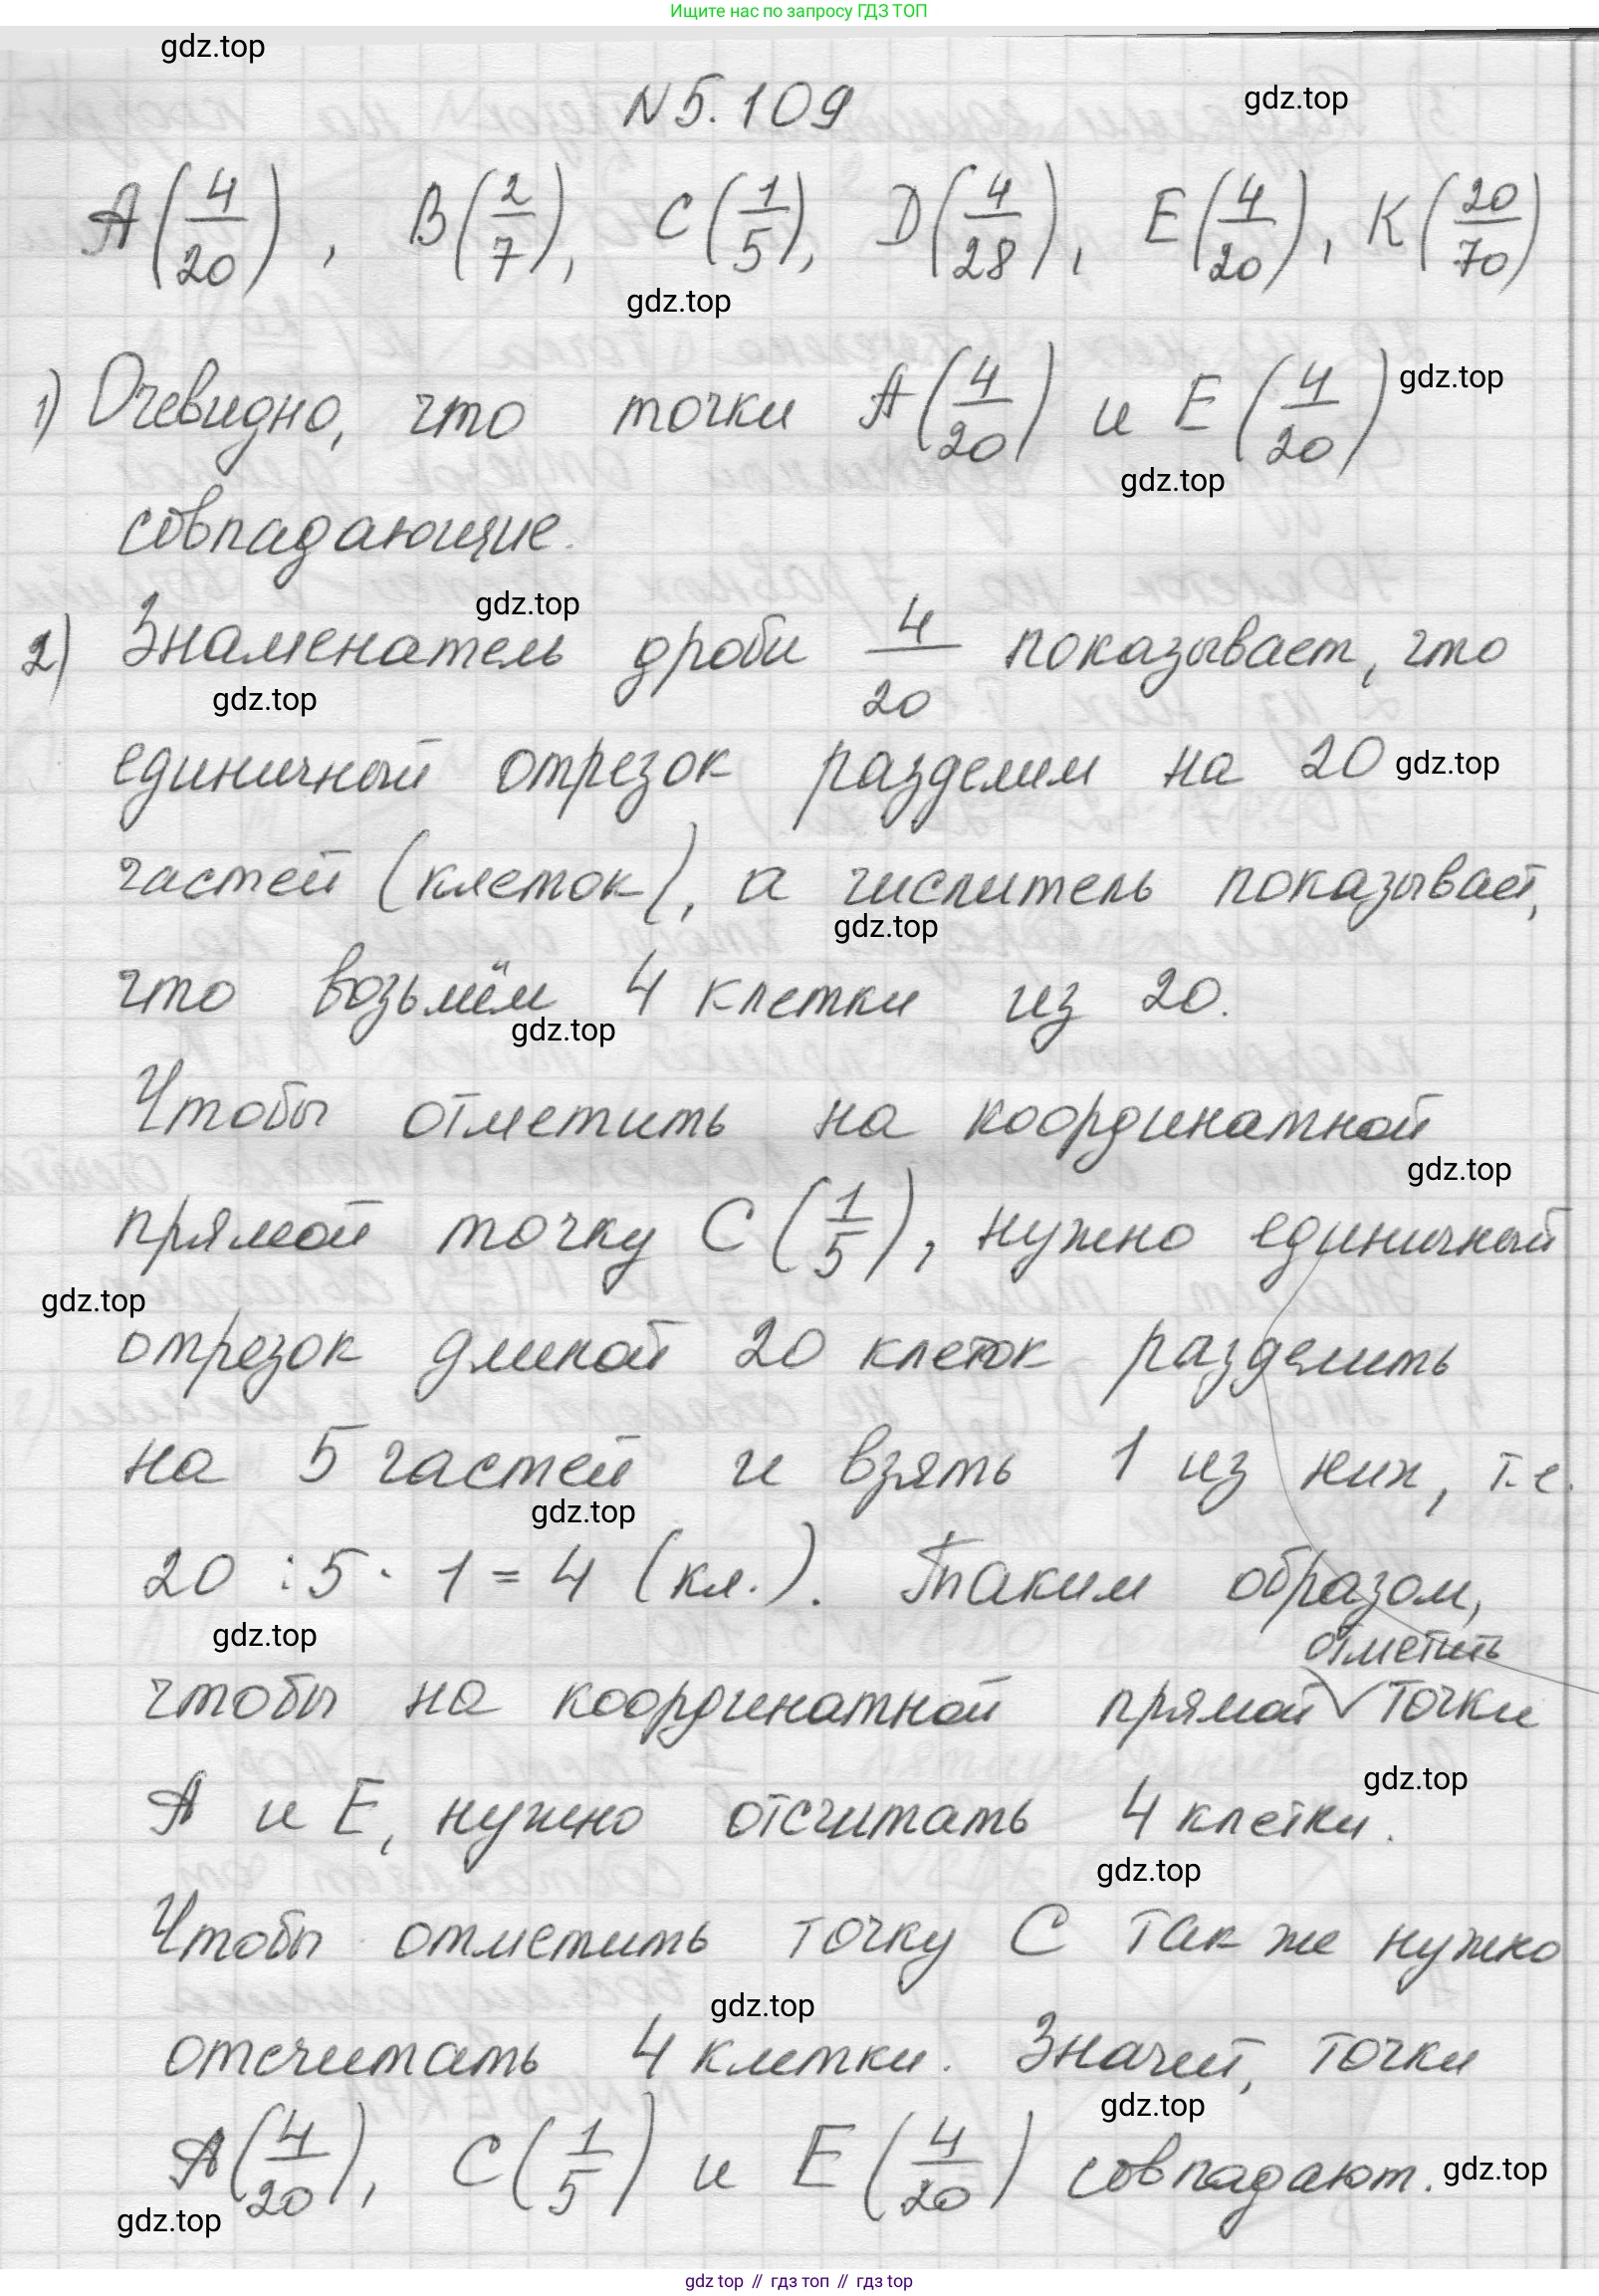 Ищите нас по запросу ГДЗ ТОП
gdz.top
N5.109
gdz.top
A(4/20), B(2/7), C(1/5), D(4/28), E(4/20), K(20/70)
gdz.top
1) Очевидно, что точки A(4/20) и E(4/20)
gdz.top
gdz.top
совпадающие.
gdz.top
2) Знаменатель дроби 4/20 показывает, что
gdz.top
единичный отрезок разделим на 20
gdz.top
частей (клеток), а числитель показывает,
gdz.top
что возьмём 4 клетки из 20.
gdz.top
Чтобы отметить на координатной
gdz.top
прямой точку C(1/5), нужно единичный
gdz.top
отрезок длиной 20 клеток разделить
на 5 частей и взять 1 из них, т.е.
gdz.top
20 : 5 · 1 = 4 (кл.). Таким образом,
gdz.top
отметить
чтобы на координатной прямой √ точки
gdz.top
A и E, нужно отсчитать 4 клетки.
gdz.top
Чтобы отметить точку C так же нужно
gdz.top
отсчитать 4 клетки. Значит, точки
gdz.top
A(4/20), C(1/5) и E(4/20) совпадают.
gdz.top
gdz.top
gdz top // гдз топ // гдз top